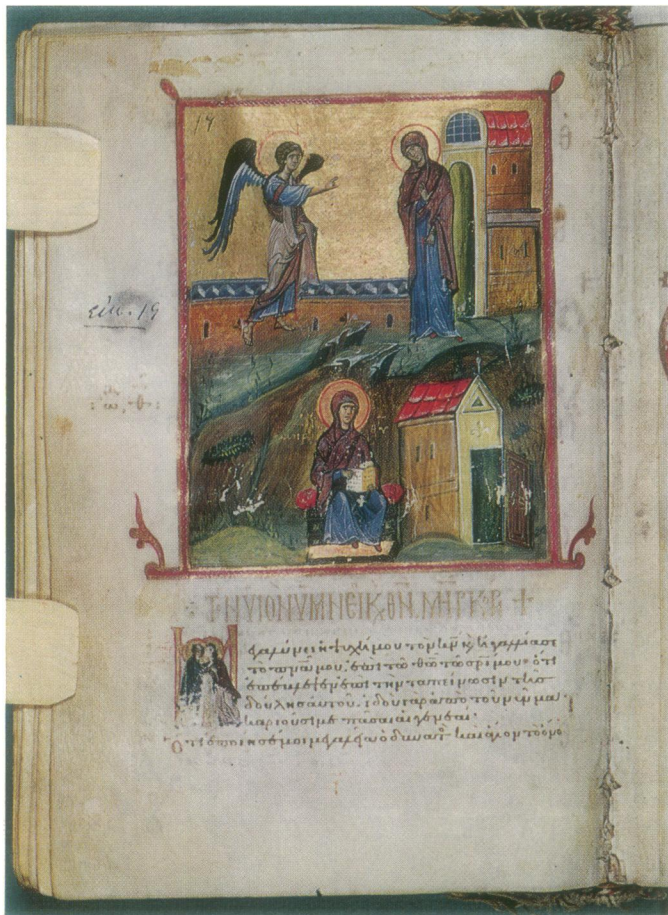 εἰκ. 19
: ᾠ, θ :
Τ͂Ν ΥΙΟΝ ΥΜΝΕΙ Κ ΘΝ ΜΗΡ +
Μεγαλύνει ἡ ψυχή μου τὸν κν κ ἠγαλλίασε
το πνα μου, ἐπὶ τῶ θω τῶ σρι μου· ὅτι
ἐπέβλεψεν ἐπὶ τὴν ταπείνωσιν τῆς
δούλης αὐτοῦ. ἰδοὺ γὰρ ἀπὸ τοῦ νῦν μα
καριοῦσί με πᾶσαι αἱ γενεαί·
Ὅτι ἐποίησέ μοι μεγαλεῖα ὁ δυνατ καὶ ἅγιον τὸ ὄνο